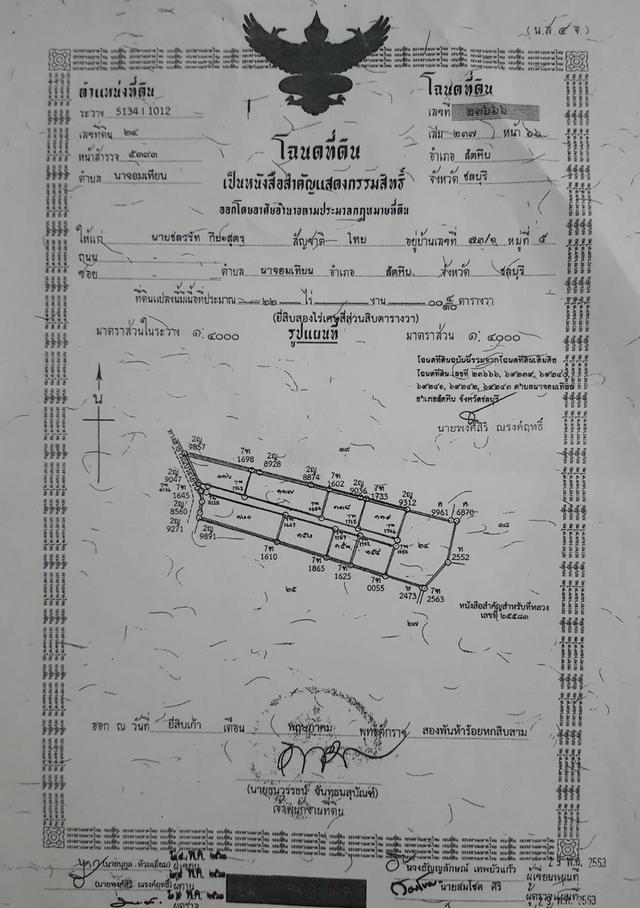 (น.ส ๔ จ.)
ตำแหน่งที่ดิน
ระวาง 5134 I 1012
เลขที่ดิน ๒๔
หน้าสำรวจ ๕๓๙๓
ตำบล นาจอมเทียน
โฉนดที่ดิน
เลขที่ ๒๓๖๖๖
เล่ม ๒๓๗ หน้า ๖๖
อำเภอ สัตหีบ
จังหวัด ชลบุรี
โฉนดที่ดิน
เป็นหนังสือสำคัญแสดงกรรมสิทธิ์
ออกโดยอาศัยอำนาจตามประมวลกฎหมายที่ดิน
ให้แก่ นายชลวรัท สัญชาติ ไทย อยู่บ้านเลขที่ หมู่ที่ ๕
ถนน -
ซอย - ตำบล นาจอมเทียน อำเภอ สัตหีบ จังหวัด ชลบุรี
ที่ดินแปลงนี้มีเนื้อที่ประมาณ ๒๒ ไร่ - งาน ๐๐ ๔/๑๐ ตารางวา
(ยี่สิบสองไร่เศษสี่ส่วนสิบตารางวา)
มาตราส่วนในระวาง ๑: ๔๐๐๐ รูปแผนที่ มาตราส่วน ๑: ๔๐๐๐
โฉนดที่ดินฉบับนี้รวมจากโฉนดที่ดินเดิมคือ
โฉนดที่ดิน เลขที่ ๒๓๖๖๖, ๖๙๒๓๙, ๖๙๒๔๐,
๖๙๒๔๑, ๖๙๒๔๒, ๖๙๒๔๓ ตำบลนาจอมเทียน
อำเภอสัตหีบ จังหวัดชลบุรี
นายพงศ์สิริ ณรงค์ฤทธิ์
น
2ญ 9857
7ฑ 1698
2ญ 8928
๑๙
2ญ 8874
7ฑ 1602
2ญ 9036
7ฑ 1733
2ญ 9312
ศ 9961
ศ 6870
๑๘
2ญ 9047
7ฑ 1645
2ญ 8560
2ญ 9271
2ญ 9891
7ฑ 1610
7ฑ 1865
7ฑ 1625
7ฑ 0055
2473
7ฑ 2563
ท 2552
๒๔
๒๕
๒๗
หนังสือสำคัญสำหรับที่หลวง
เลขที่ ๒๕๕๘๓
ออก ณ วันที่ ยี่สิบเก้า เดือน พฤษภาคม พุทธศักราช สองพันห้าร้อยหกสิบสาม
เจ้าพนักงานที่ดิน
(นายพงศ์สิริ ณรงค์ฤทธิ์)
ผู้เขียนแผนที่
นายสมโชค ศิริ